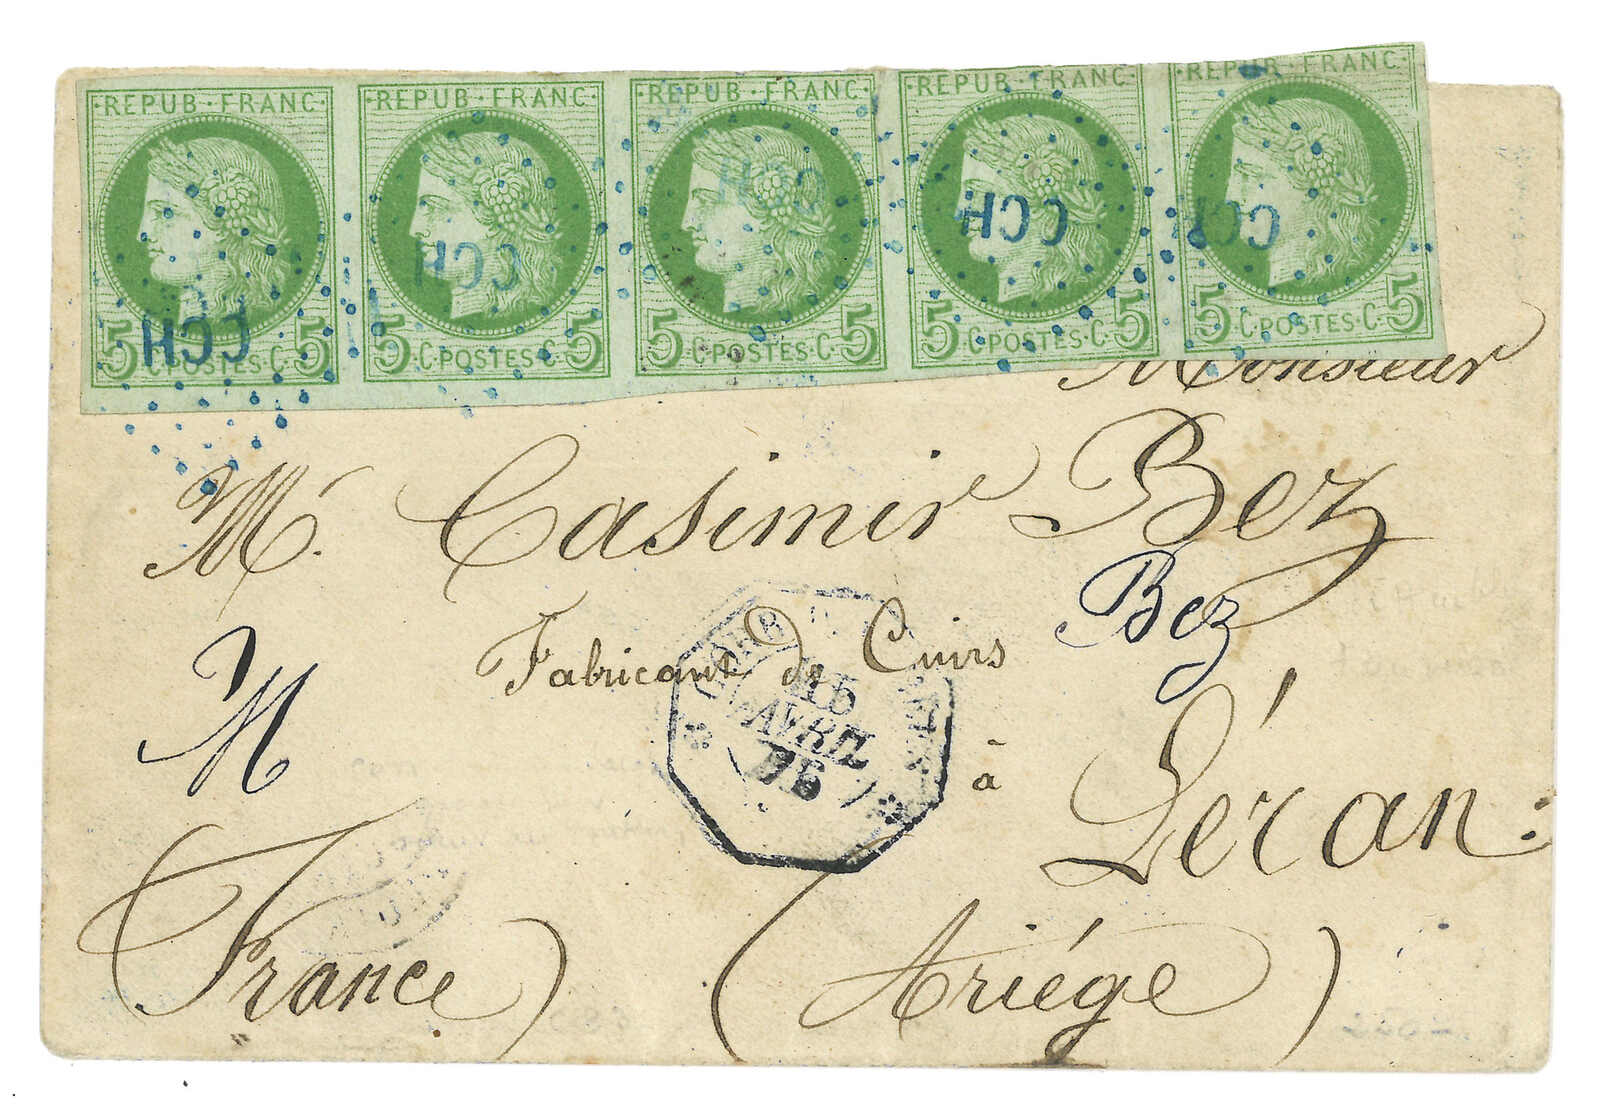 REPUB·FRANC· REPUB·FRANC· REPUB·FRANC· REPUB·FRANC· REPUB·FRANC·
CCH CCH CCH CCH CCH
5 C·POSTES·C· 5 5 C·POSTES·C· 5 5 C·POSTES·C· 5 5 C·POSTES·C· 5 5 C·POSTES·C· 5
Monsieur
Mr. Casimir Bez
Bez
Fabricant de Cuirs
M
CORR
15
AVRIL
75
à
Léran:
(Ariége)
France)